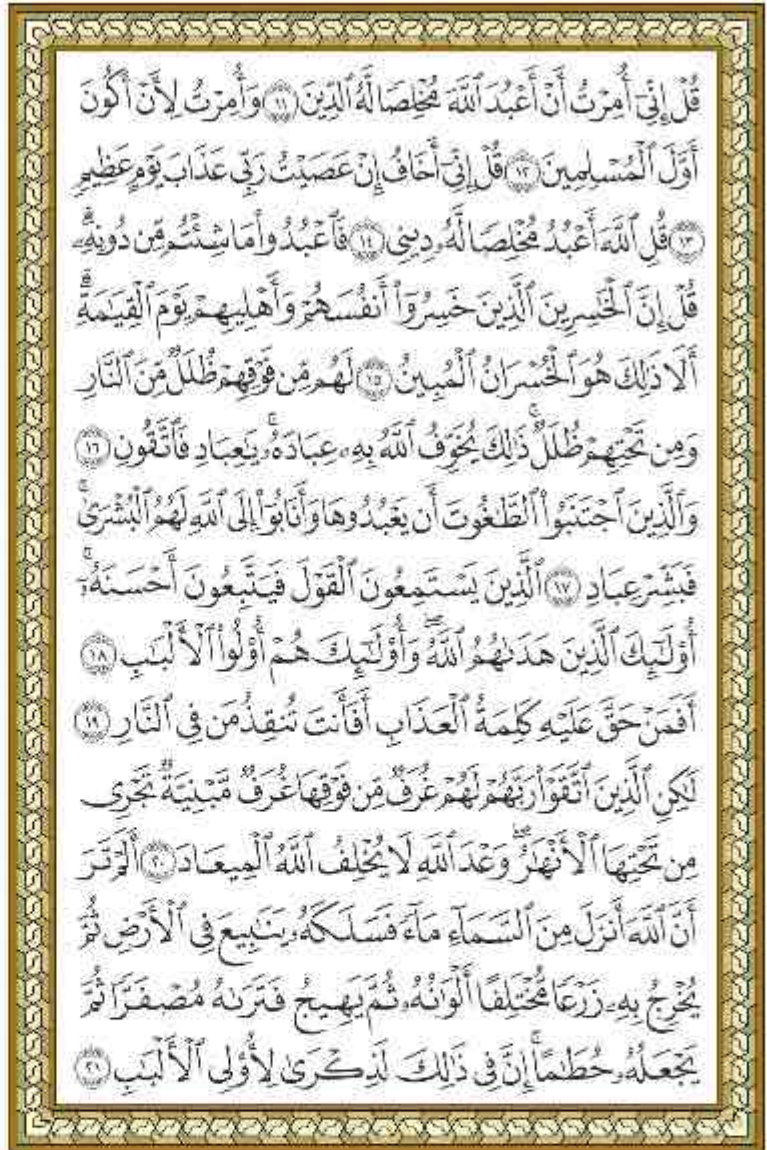 قُلْ إِنِّيٓ أُمِرْتُ أَنْ أَعْبُدَ ٱللَّهَ مُخْلِصًا لَّهُ ٱلدِّينَ ١١ وَأُمِرْتُ لِأَنْ أَكُونَ
أَوَّلَ ٱلْمُسْلِمِينَ ١٢ قُلْ إِنِّيٓ أَخَافُ إِنْ عَصَيْتُ رَبِّي عَذَابَ يَوْمٍ عَظِيمٍ
١٣ قُلِ ٱللَّهَ أَعْبُدُ مُخْلِصًا لَّهُۥ دِينِي ١٤ فَٱعْبُدُوا۟ مَا شِئْتُم مِّن دُونِهِۦۗ
قُلْ إِنَّ ٱلْخَٰسِرِينَ ٱلَّذِينَ خَسِرُوٓا۟ أَنفُسَهُمْ وَأَهْلِيهِمْ يَوْمَ ٱلْقِيَٰمَةِۗ
أَلَا ذَٰلِكَ هُوَ ٱلْخُسْرَانُ ٱلْمُبِينُ ١٥ لَهُم مِّن فَوْقِهِمْ ظُلَلٌ مِّنَ ٱلنَّارِ
وَمِن تَحْتِهِمْ ظُلَلٌۚ ذَٰلِكَ يُخَوِّفُ ٱللَّهُ بِهِۦ عِبَادَهُۥۚ يَٰعِبَادِ فَٱتَّقُونِ ١٦
وَٱلَّذِينَ ٱجْتَنَبُوا۟ ٱلطَّٰغُوتَ أَن يَعْبُدُوهَا وَأَنَابُوٓا۟ إِلَى ٱللَّهِ لَهُمُ ٱلْبُشْرَىٰۚ
فَبَشِّرْ عِبَادِ ١٧ ٱلَّذِينَ يَسْتَمِعُونَ ٱلْقَوْلَ فَيَتَّبِعُونَ أَحْسَنَهُۥٓۚ
أُو۟لَٰٓئِكَ ٱلَّذِينَ هَدَىٰهُمُ ٱللَّهُۖ وَأُو۟لَٰٓئِكَ هُمْ أُو۟لُوا۟ ٱلْأَلْبَٰبِ ١٨
أَفَمَنْ حَقَّ عَلَيْهِ كَلِمَةُ ٱلْعَذَابِ أَفَأَنتَ تُنقِذُ مَن فِي ٱلنَّارِ ١٩
لَٰكِنِ ٱلَّذِينَ ٱتَّقَوْا۟ رَبَّهُمْ لَهُمْ غُرَفٌ مِّن فَوْقِهَا غُرَفٌ مَّبْنِيَّةٌ تَجْرِي
مِن تَحْتِهَا ٱلْأَنْهَٰرُۖ وَعْدَ ٱللَّهِ لَا يُخْلِفُ ٱللَّهُ ٱلْمِيعَادَ ٢٠ أَلَمْ تَرَ
أَنَّ ٱللَّهَ أَنزَلَ مِنَ ٱلسَّمَآءِ مَآءً فَسَلَكَهُۥ يَنَٰبِيعَ فِي ٱلْأَرْضِ ثُمَّ
يُخْرِجُ بِهِۦ زَرْعًا مُّخْتَلِفًا أَلْوَٰنُهُۥ ثُمَّ يَهِيجُ فَتَرَىٰهُ مُصْفَرًّا ثُمَّ
يَجْعَلُهُۥ حُطَٰمًاۚ إِنَّ فِي ذَٰلِكَ لَذِكْرَىٰ لِأُو۟لِي ٱلْأَلْبَٰبِ ٢١